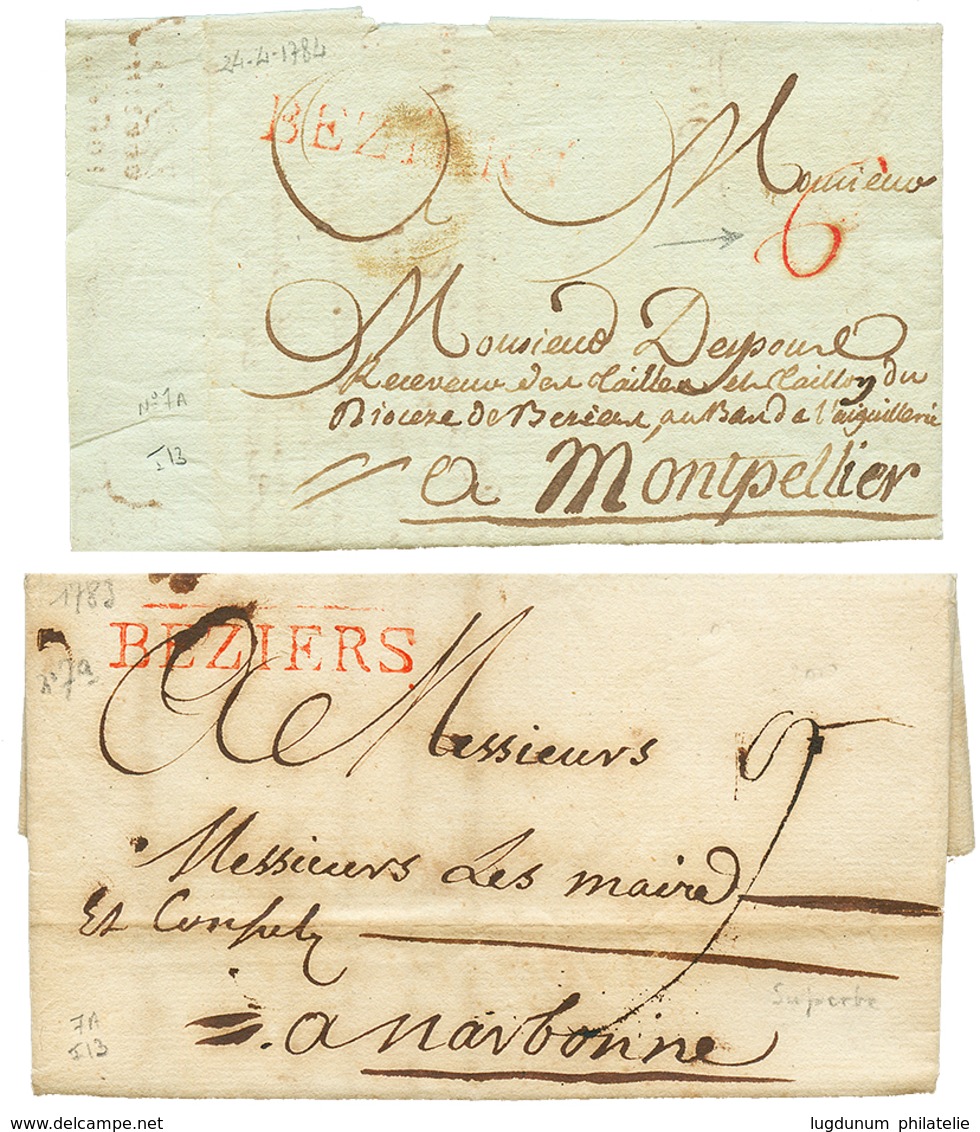 24-4-1784
BEZIERS
A Monsieur
6
Monsieur Despous
Receveur des Tailles et Taillon du
Dioceze de Beziers, au Band de l'aiguillerie
N° 7A
I13
a Montpellier
1783
BEZIERS
N° 7a
A Messieurs
Messieurs Les maire
Et Consuls
Superbe
7A
I13
a Narbonne
www.delcampe.net
lugdunum philatelie